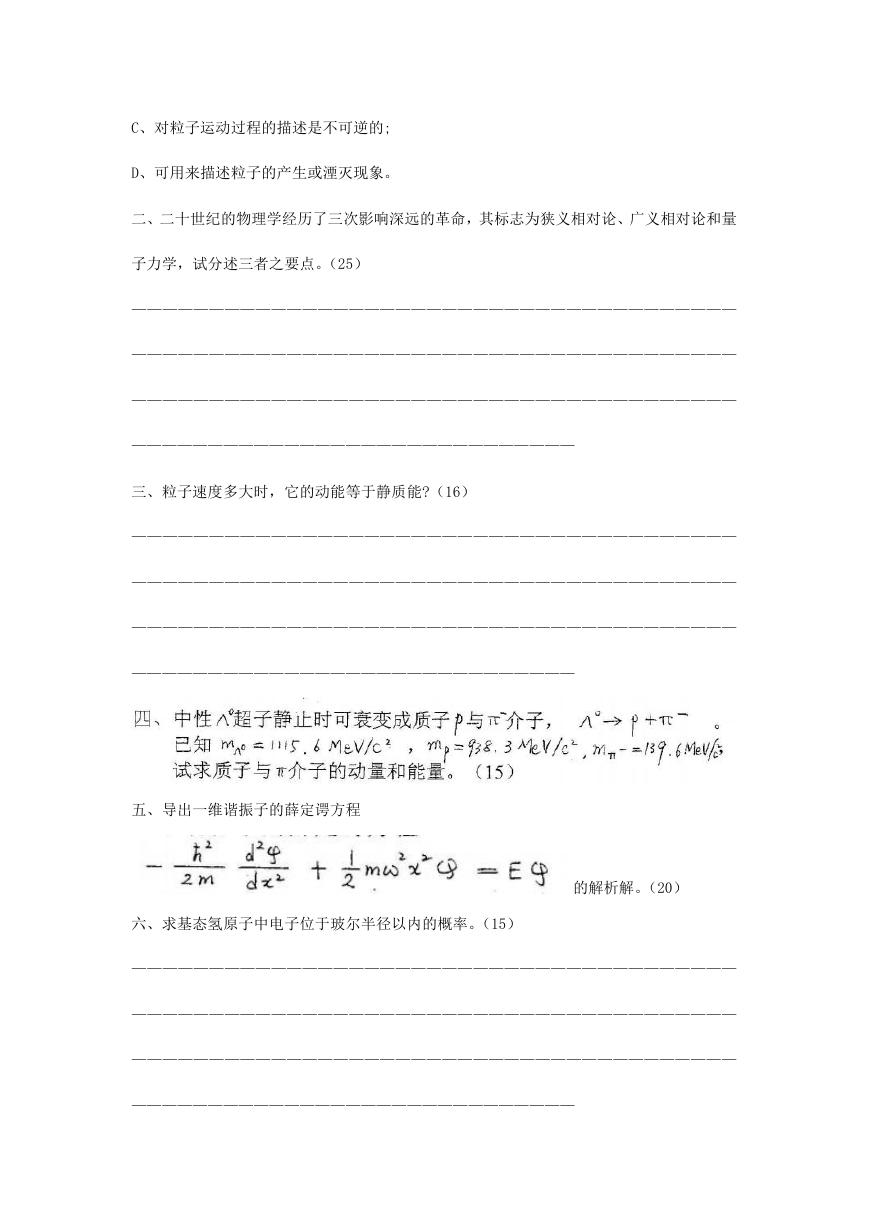 C、对粒子运动过程的描述是不可逆的;
D、可用来描述粒子的产生或湮灭现象。
二、二十世纪的物理学经历了三次影响深远的革命，其标志为狭义相对论、广义相对论和量
子力学，试分述三者之要点。（25）
三、粒子速度多大时，它的动能等于静质能?（16）
四、中性Λ⁰超子静止时可衰变成质子p与π⁻介子， Λ⁰→p+π⁻ 。
已知 m_Λ⁰=1115.6 MeV/c² ，m_p=938.3 MeV/c²，m_π⁻=139.6MeV/c²；
试求质子与π介子的动量和能量。（15）
五、导出一维谐振子的薛定谔方程
-ħ²/2m d²φ/dx² + 1/2 mω²x²φ = Eφ 的解析解。（20）
六、求基态氢原子中电子位于玻尔半径以内的概率。（15）